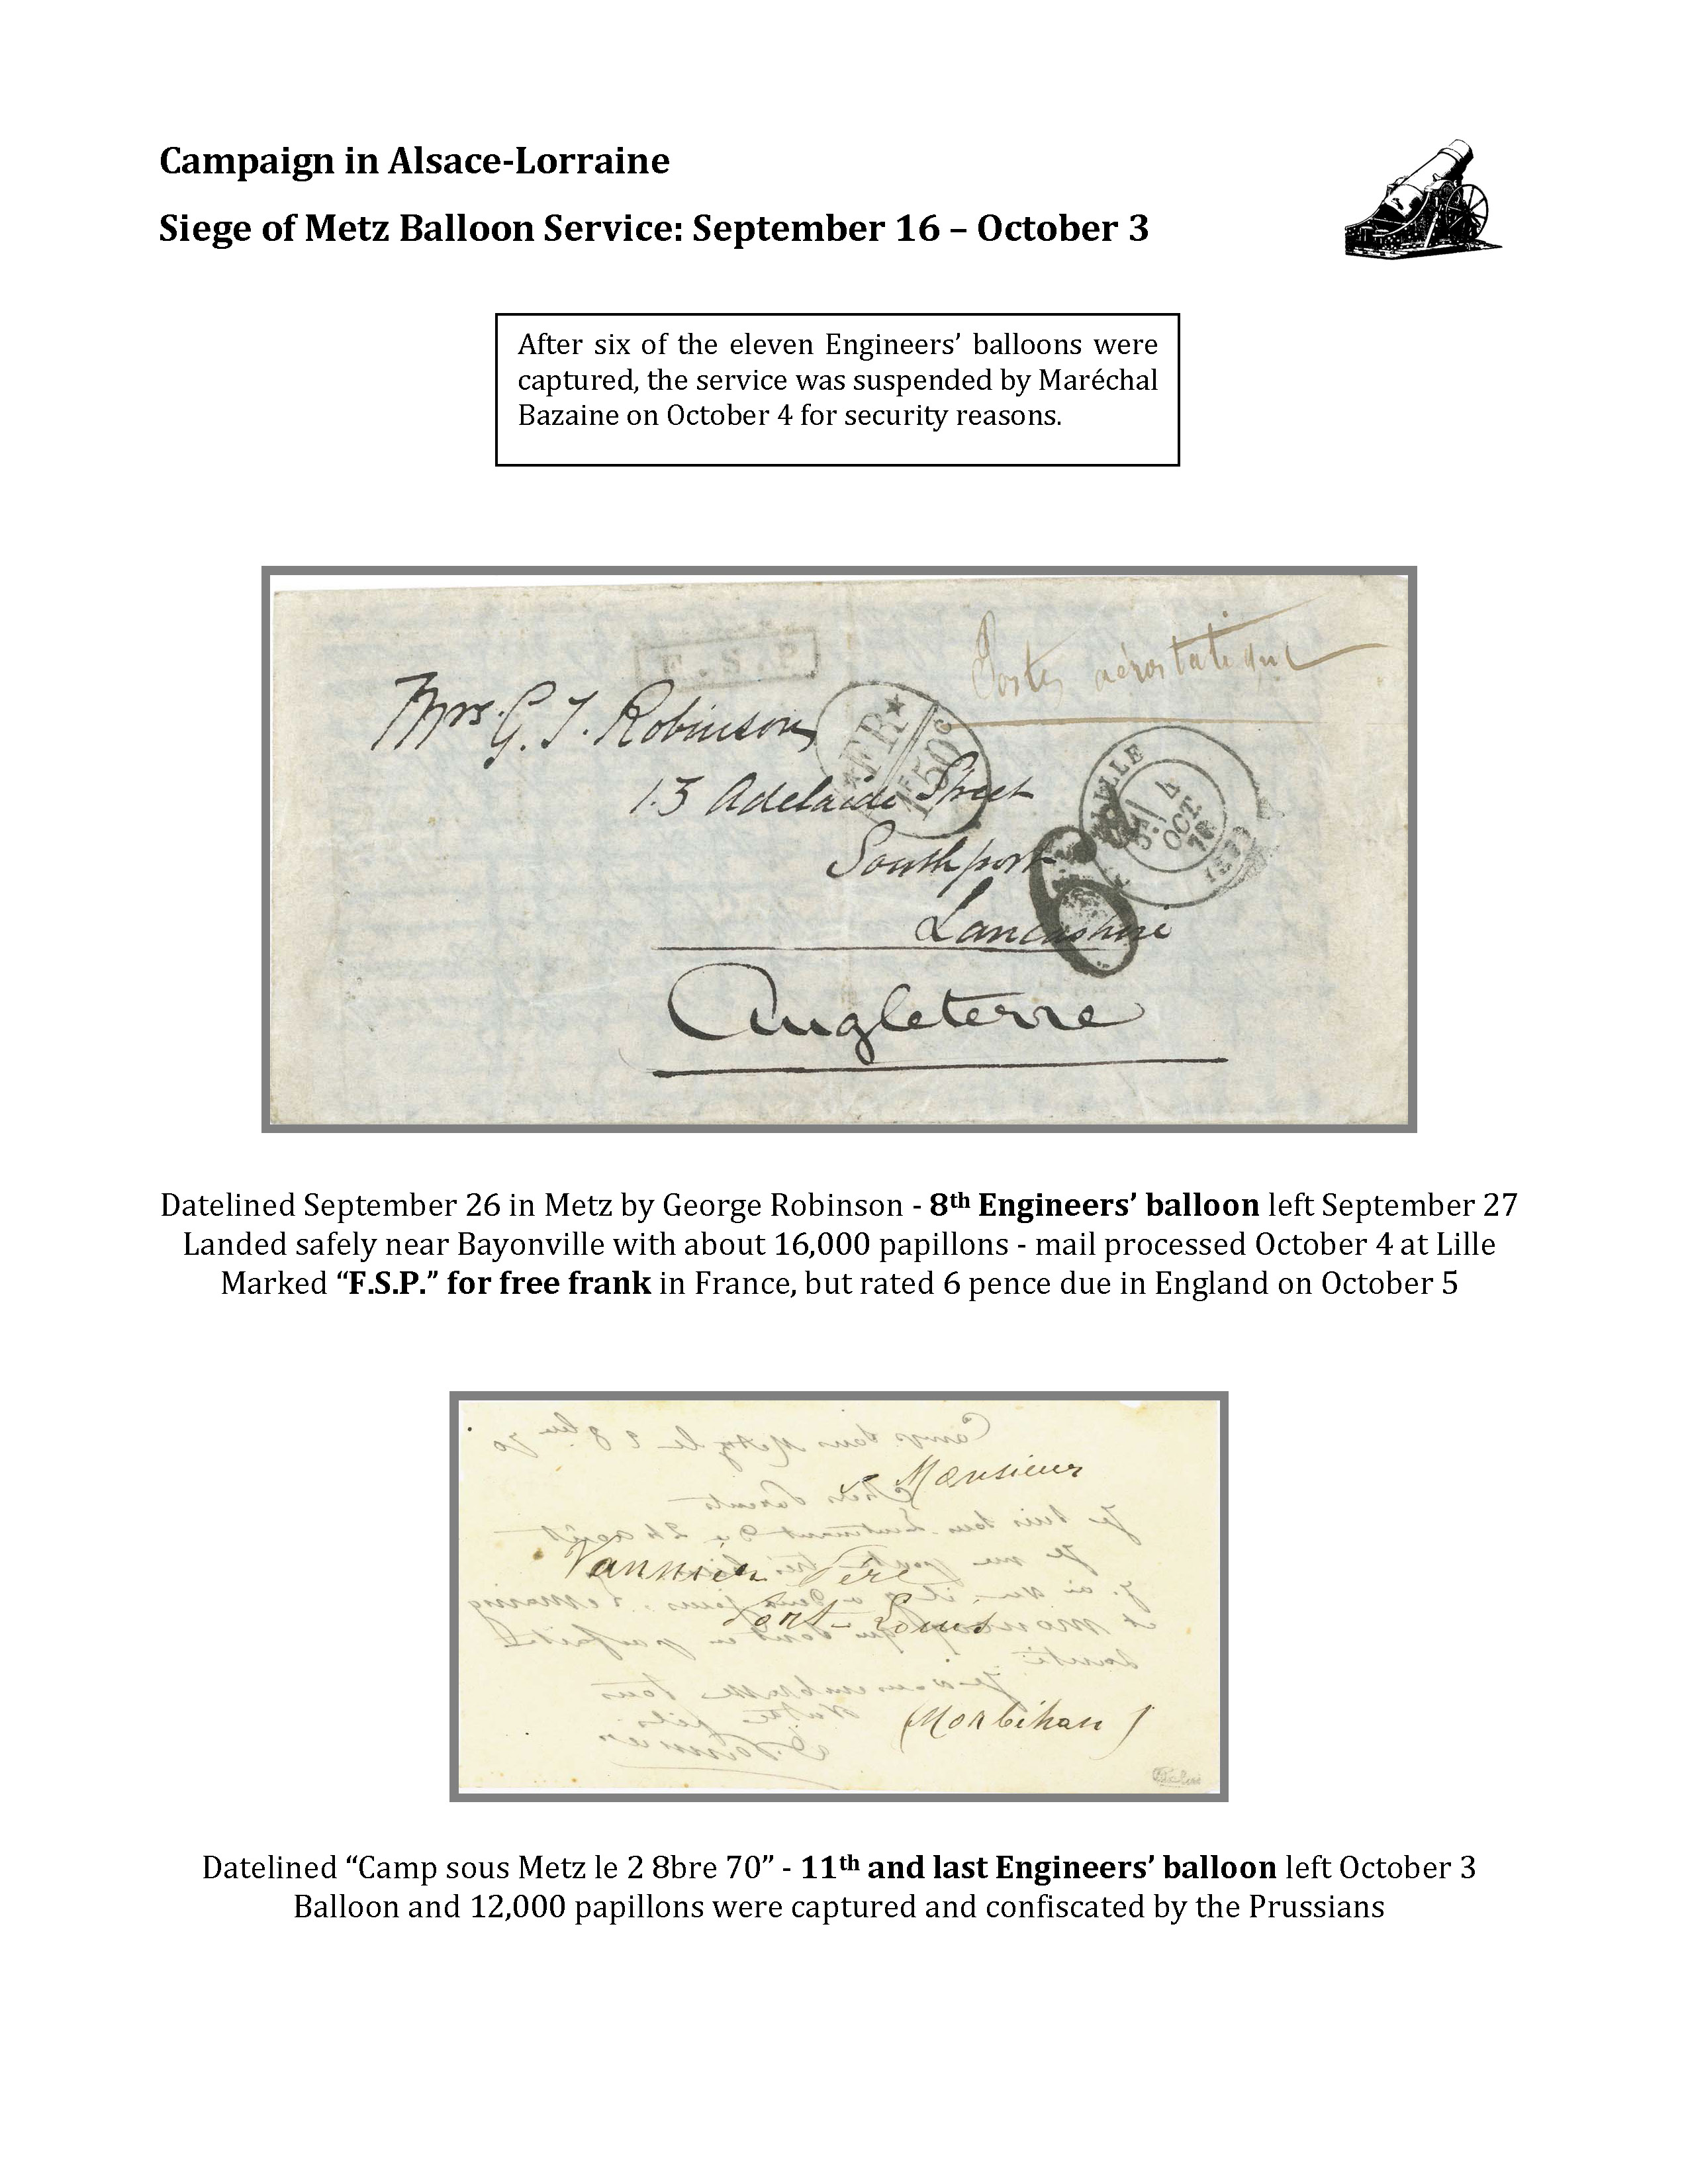 Campaign in Alsace-Lorraine
Siege of Metz Balloon Service: September 16 – October 3
After six of the eleven Engineers’ balloons were
captured, the service was suspended by Maréchal
Bazaine on October 4 for security reasons.
F.S.P.
Postes aérostatique
Mrs. G. T. Robinson
FR
1F50c
13 Adelaide Street
LILLE
4
OCT.
70
Southport
6
Lancashire
Angleterre
Datelined September 26 in Metz by George Robinson - 8th Engineers’ balloon left September 27
Landed safely near Bayonville with about 16,000 papillons - mail processed October 4 at Lille
Marked “F.S.P.” for free frank in France, but rated 6 pence due in England on October 5
Camp sous Metz le 2 8bre 70
Monsieur
Vannier Père
Port-Louis
(Morbihan)
Datelined “Camp sous Metz le 2 8bre 70” - 11th and last Engineers’ balloon left October 3
Balloon and 12,000 papillons were captured and confiscated by the Prussians